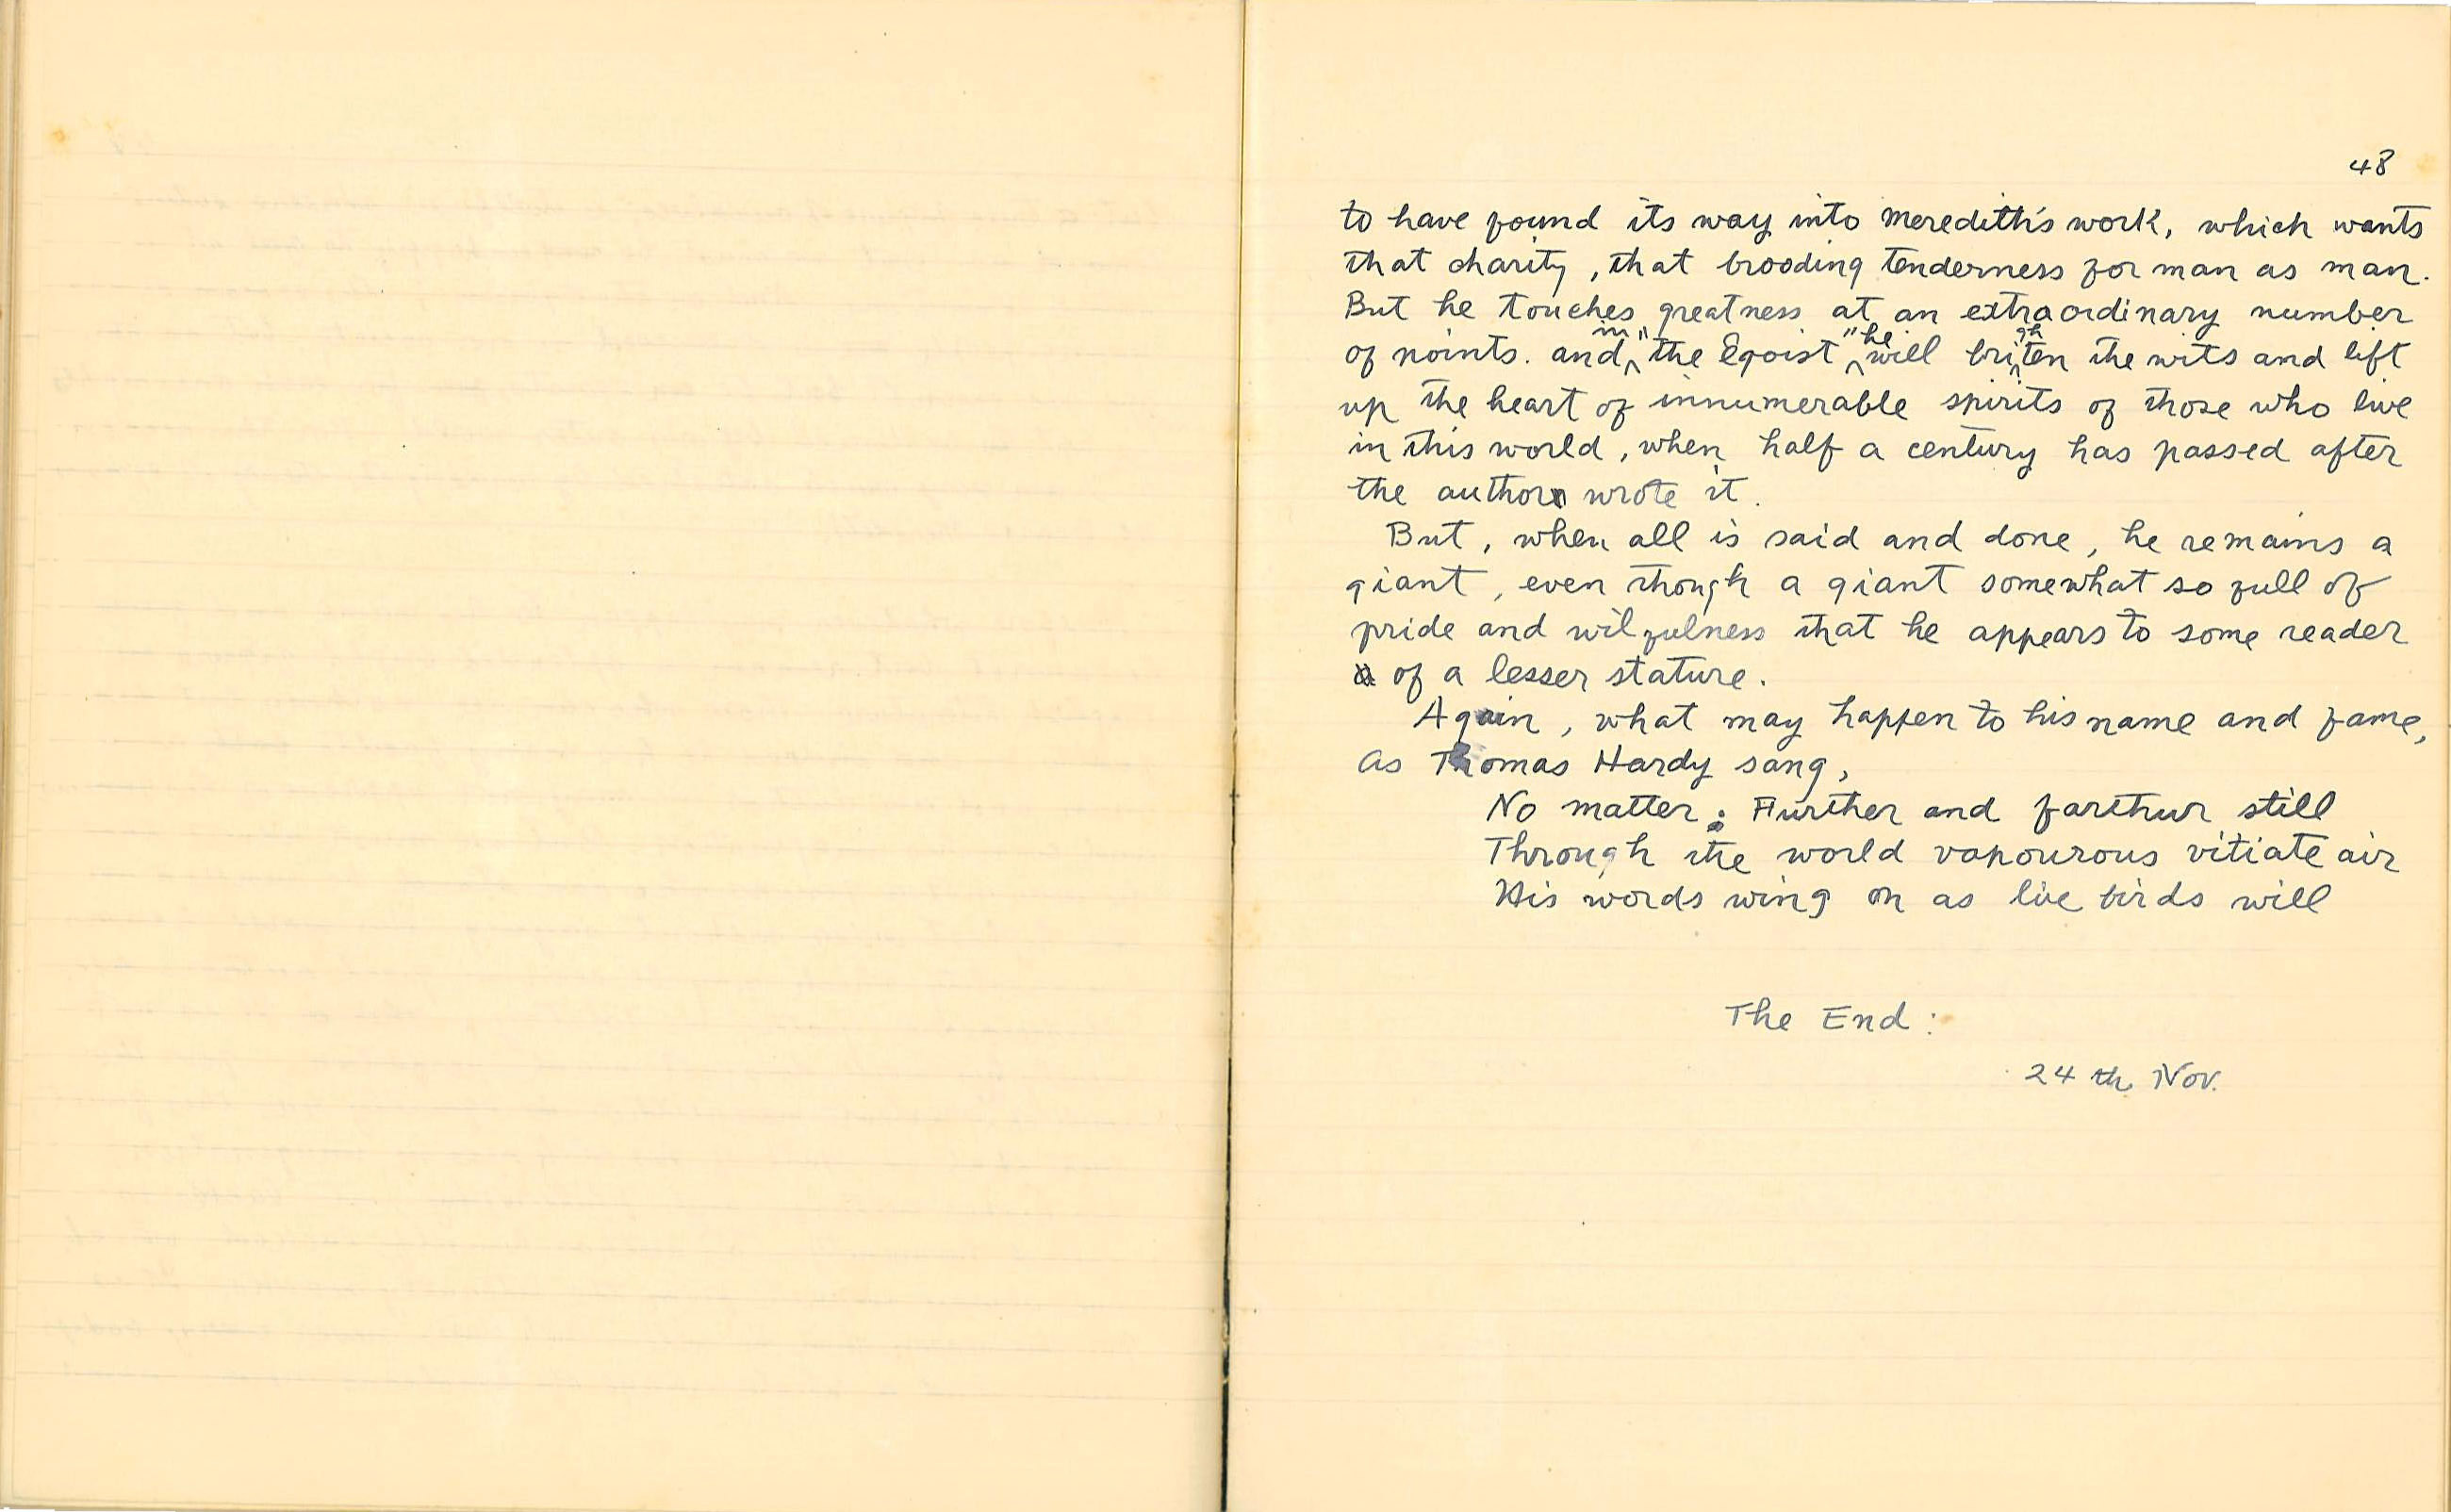 48
to have found its way into Meredith's work, which wants
that charity, that brooding tenderness for man as man.
But he touches greatness at an extraordinary number
of points. and in "the Egoist" he will brighten the wits and lift
up the heart of innumerable spirits of those who live
in this world, when half a century has passed after
the author wrote it.
But, when all is said and done, he remains a
giant, even though a giant somewhat so full of
pride and wilfulness that he appears to some reader
of a lesser stature.
Again, what may happen to his name and fame,
as Thomas Hardy sang,
No matter; Further and farthur still
Through the world vapourous vitiate air
His words wing on as live birds will
The End:
24 th Nov.